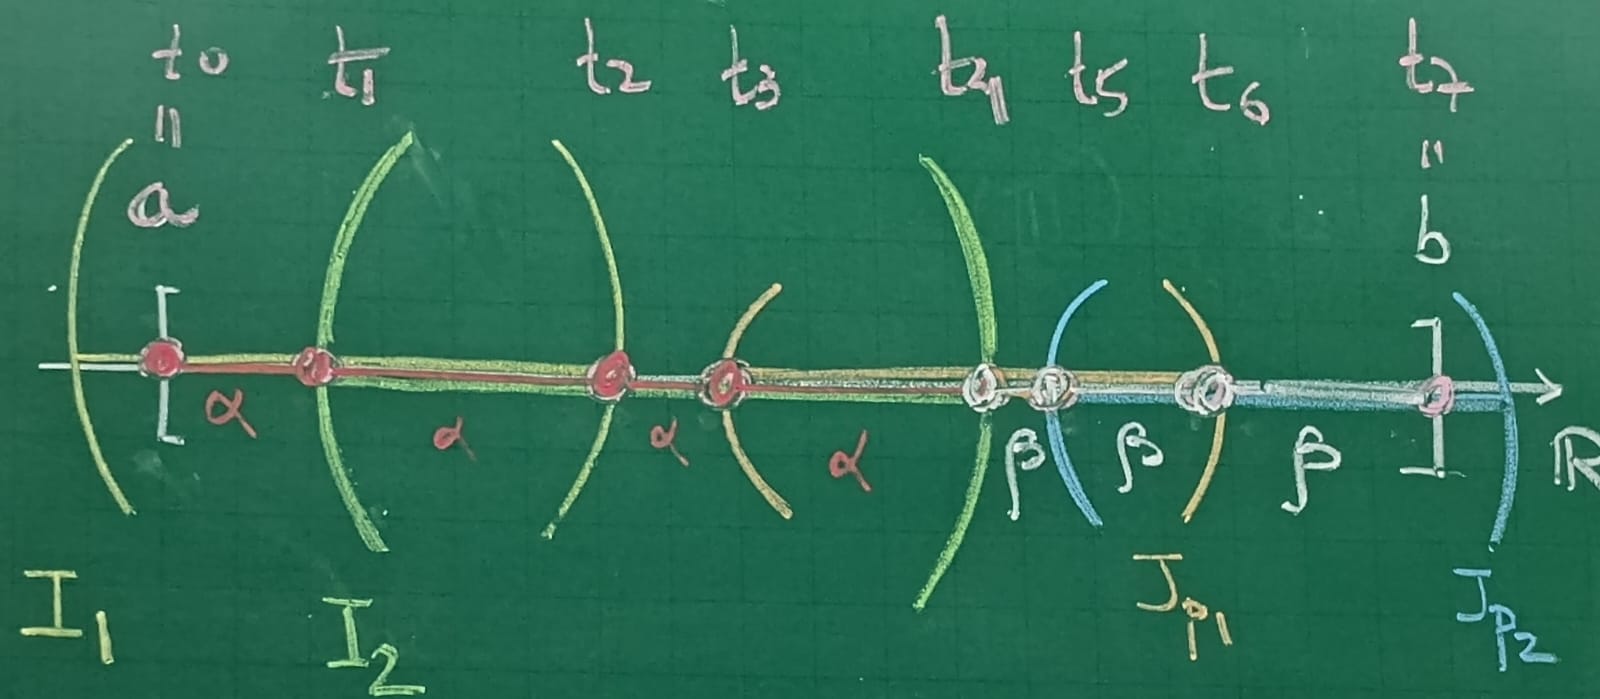 t0 t1 t2 t3 t4 t5 t6 t7
= =
a b
[ ( ) ( ) ( ) ( ) ]
α α α α β β β ℝ
I1 I2 Jp1 Jp2